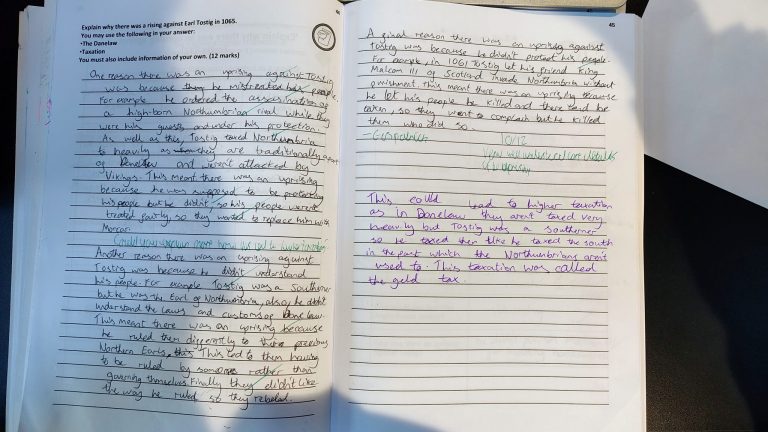 Explain why there was a rising against Earl Tostig in 1065.
You may use the following in your answer:
•The Danelaw
•Taxation
You must also include information of your own. (12 marks)
One reason there was an uprising against Tostig
was because he mistreated his people.
For example he ordered the assassination of
a high-born Northumbrian rival while they
were his guests and under his protection.
As well as this, Tostig taxed Northumbria
to heavily as they are traditionally apart
of Danelaw and weren't attacked by
Vikings. This meant there was an uprising
because he was supposed to be protecting
his people but he didn't, so his people weren't
treated fairly, so they wanted to replace him with
Morcar.
Could you explain more how this led to
Another reason there was an uprising against
Tostig was because he didn't understand
his people. For example Tostig was a southerner
but he was the Earl of Northumbria, also, he didnt
understand the laws and customs of Danelaw.
This meant there was an uprising because
he ruled them differently to their previous
Northern Earls. This led to them having
to be ruled by someone rather than
governing themselves. Finally they didn't like
the way he ruled so they rebelled.
45
A final reason there was an uprising against
Tostig was because he didn't protect his people.
For example, in 1061 Tostig let his friend King
Malcom III of Scotland invade Northumbria without
punishment. This meant there was an uprising because
he let his people be killed and there land be
taken, so they went to complain but he killed
them who did so.
- Gospatric
10/12
This could lead to higher taxation
as in Danelaw they arent taxed very
heavily but Tostig was a southerner
so he taxed then like he taxed the south
in the past which the Northumbrians aren't
used to. This taxation was called
the geld tax.